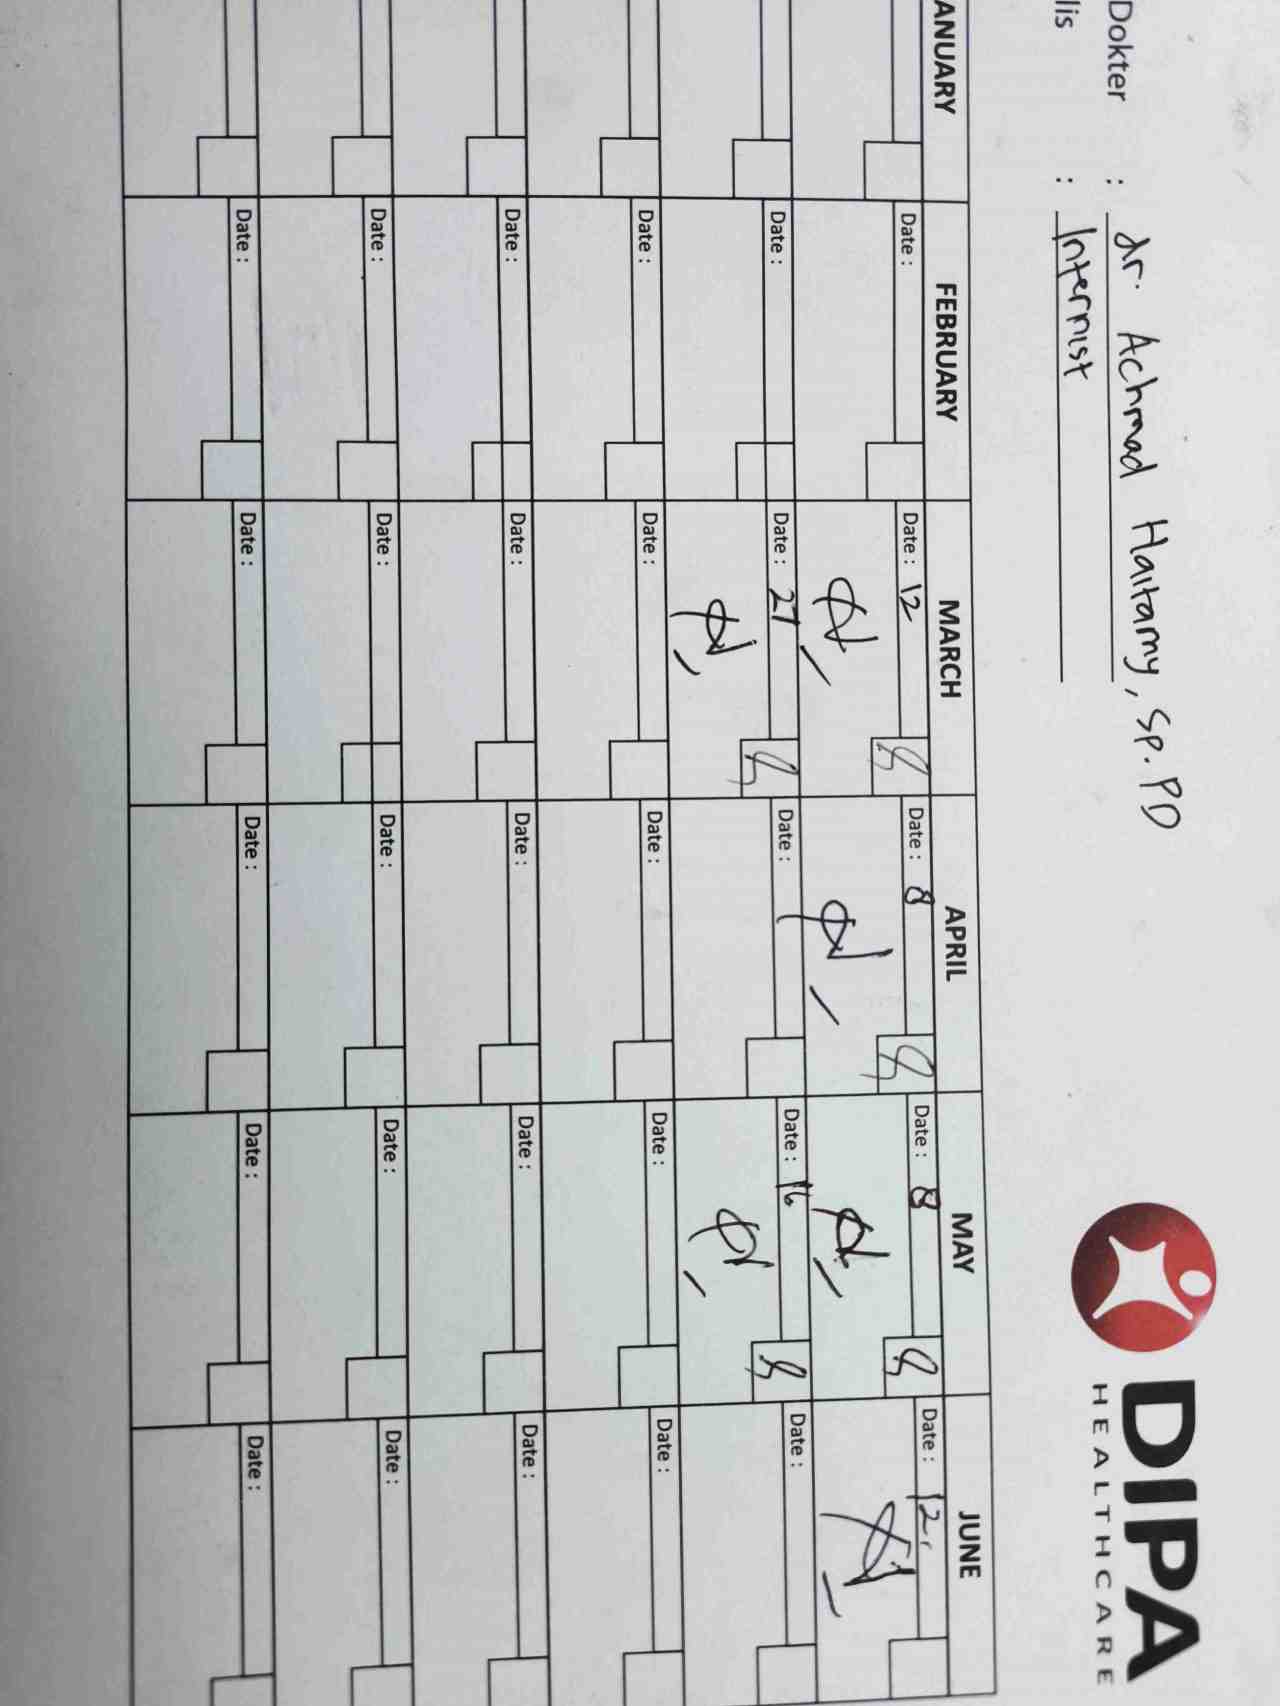 DIPA
HEALTHCARE
Dokter : dr. Achmad Haitamy, Sp. PD
lis : Internist
ANUARY FEBRUARY MARCH APRIL MAY JUNE
Date : Date : 12 Date : 8 Date : 8 Date : 12
Date : Date : 27 Date : Date : 16 Date :
Date : Date : Date : Date : Date :
Date : Date : Date : Date : Date :
Date : Date : Date : Date : Date :
Date : Date : Date : Date : Date :